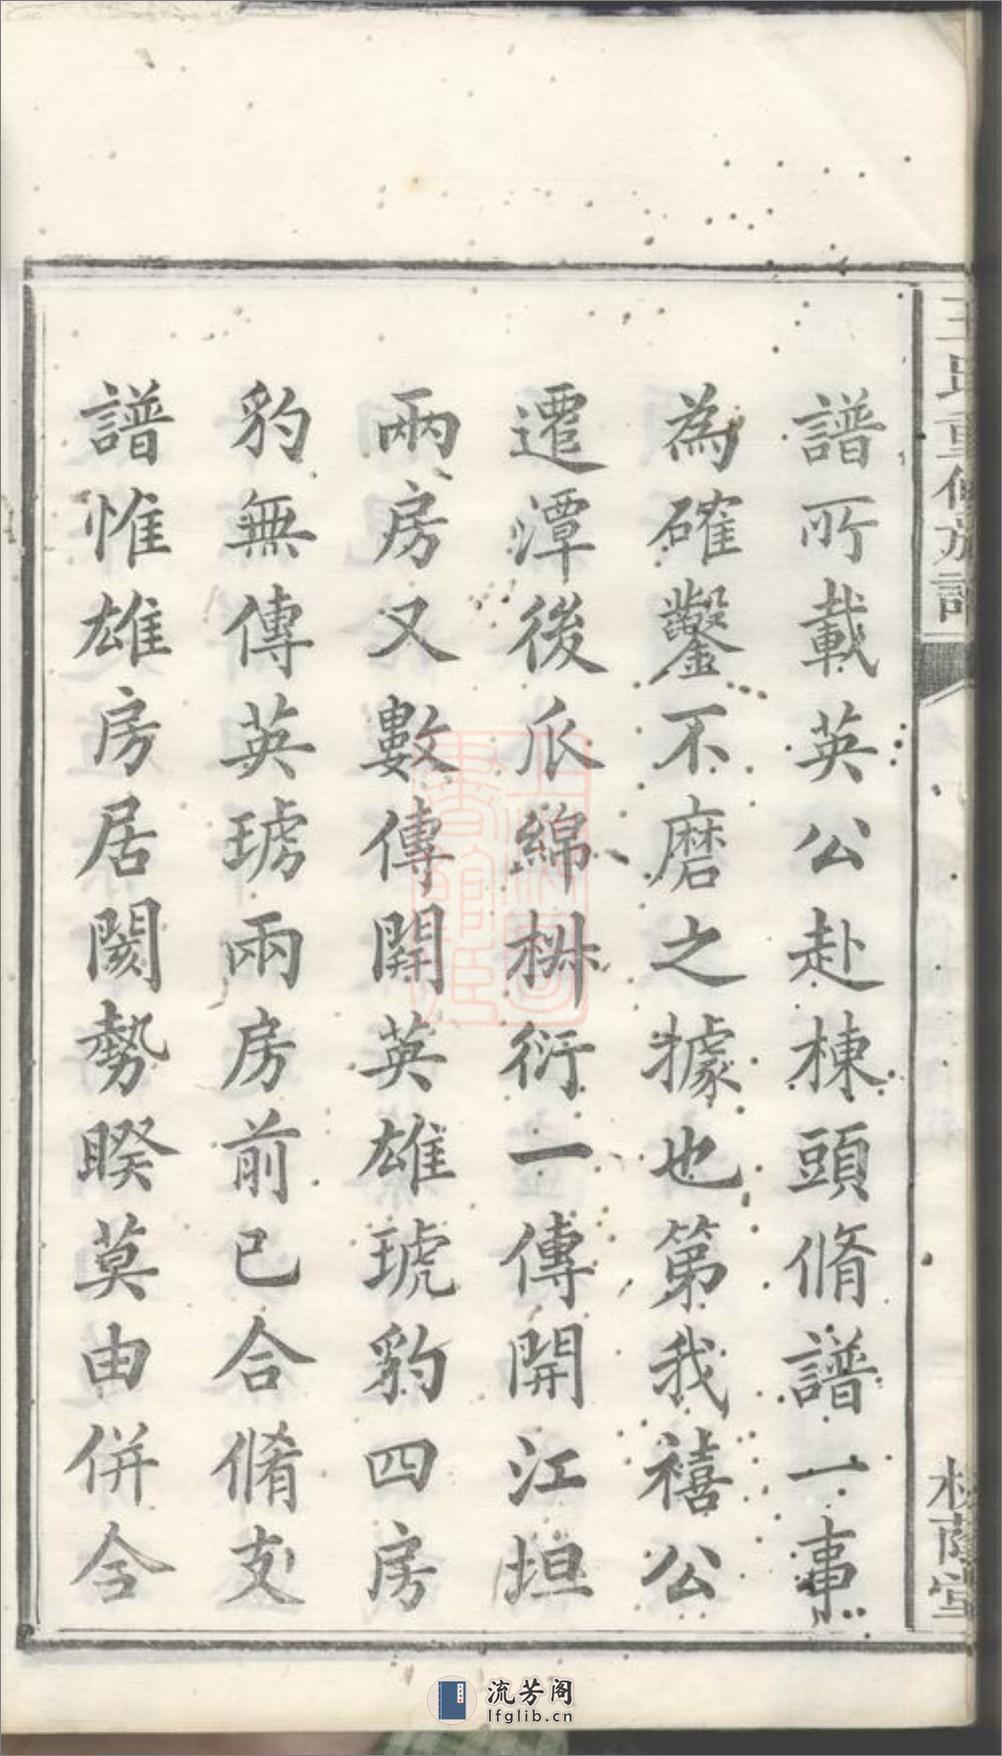 王氏重修族譜
譜所載英公赴棟頭脩譜一事
為確鑿不磨之據也第我禧公
遷潭後瓜綿椒衍一傳開江垣
兩房又數傳開英雄琥豹四房
豹無傳英琥兩房前已合脩支
譜惟雄房居闊勢暌莫由併合
流芳阁
lfglib.cn